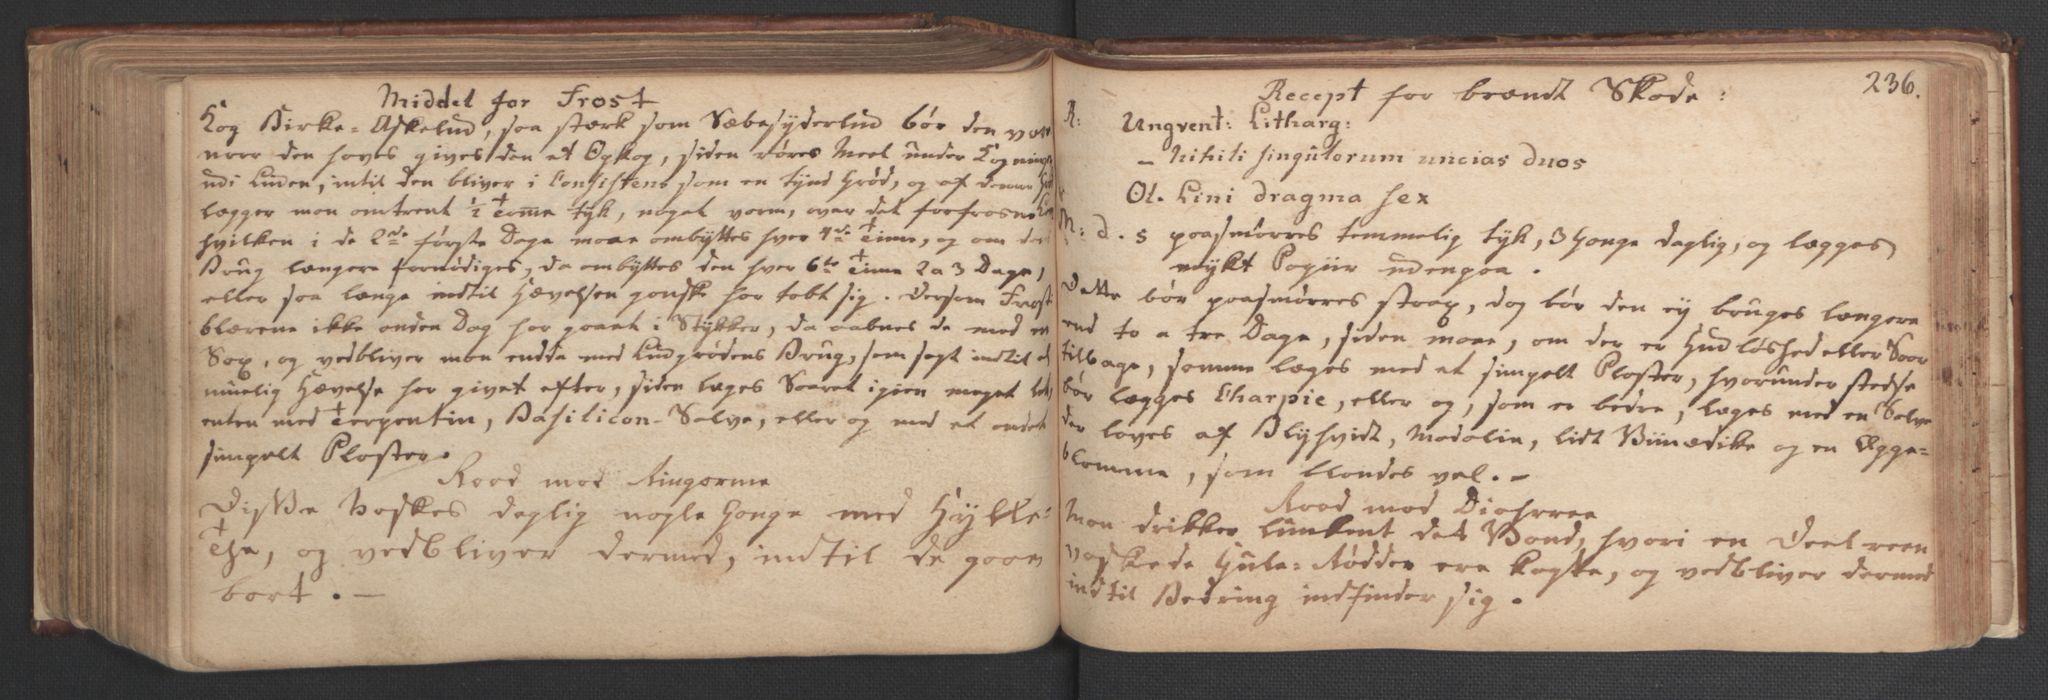 Middel for Frost
Kog Birke-Askelud, saa stærk som Sæbesyderlud bør den være
naar den haves gives den et Opkog, siden røres Meel under Kogningen
udi Luden, intil den bliver i Consistens som en tynd Grød, og af denne Grød
lægger man omtrent 1/2 Tomme tyk, noget varm, over det forfrosne
hvilken i de 2de første Dage maae ombyttes hver 4de Time, og om dens
Brug længere fornødiges, da ombyttes den hver 6te Time 2 a 3 Dage,
eller saa længe indtil Hævelsen ganske har tabt sig. Dersom Frost
blærene ikke anden Dag har gaaet i Stykker, da aabnes de med en
Sax, og vedbliver man endda med Ludgrødens Brug, som sagt indtil al
muelig Hævelse har givet efter, siden læges Saaret igien meget let,
enten med Terpentin, Basilicon-Salve, eller og med et andet
simpelt Plaster.
Raad mod Ringorme
Disse vaskes daglig nogle Gange med Hylle-
The, og vedbliver dermed, indtil de gaaer
bort. —
236.
Recept for brændt Skade:
R: Ungvent: Litharg:
— Nihili singulorum uncias duos
Ol. Lini dragma sex
M: d. s paasmørres temmelig tyk, 3 Gange daglig, og lægges
mykt Papiir udenpaa.
Dette bør paasmørres strax, dog bør den ey bruges længere
end to a tre Dage, siden maae, om der er Hudløshed eller Saar
tilbage, samme læges med et simpelt Plaster, hvorunder stedse
bør lægges Charpie, eller og, som er bedre, læges med en Salve
der laves af Blyhvidt, Madolie, lidt Viinædike og en Ægge-
blomme, som blandes vel. —
Raad mod Diahrree
Man drikker lunkent det Vand, hvori en Deel reen
vaskede Gule-Rødder ere kogte, og vedbliver dermed
indtil Bedring indfinder sig.